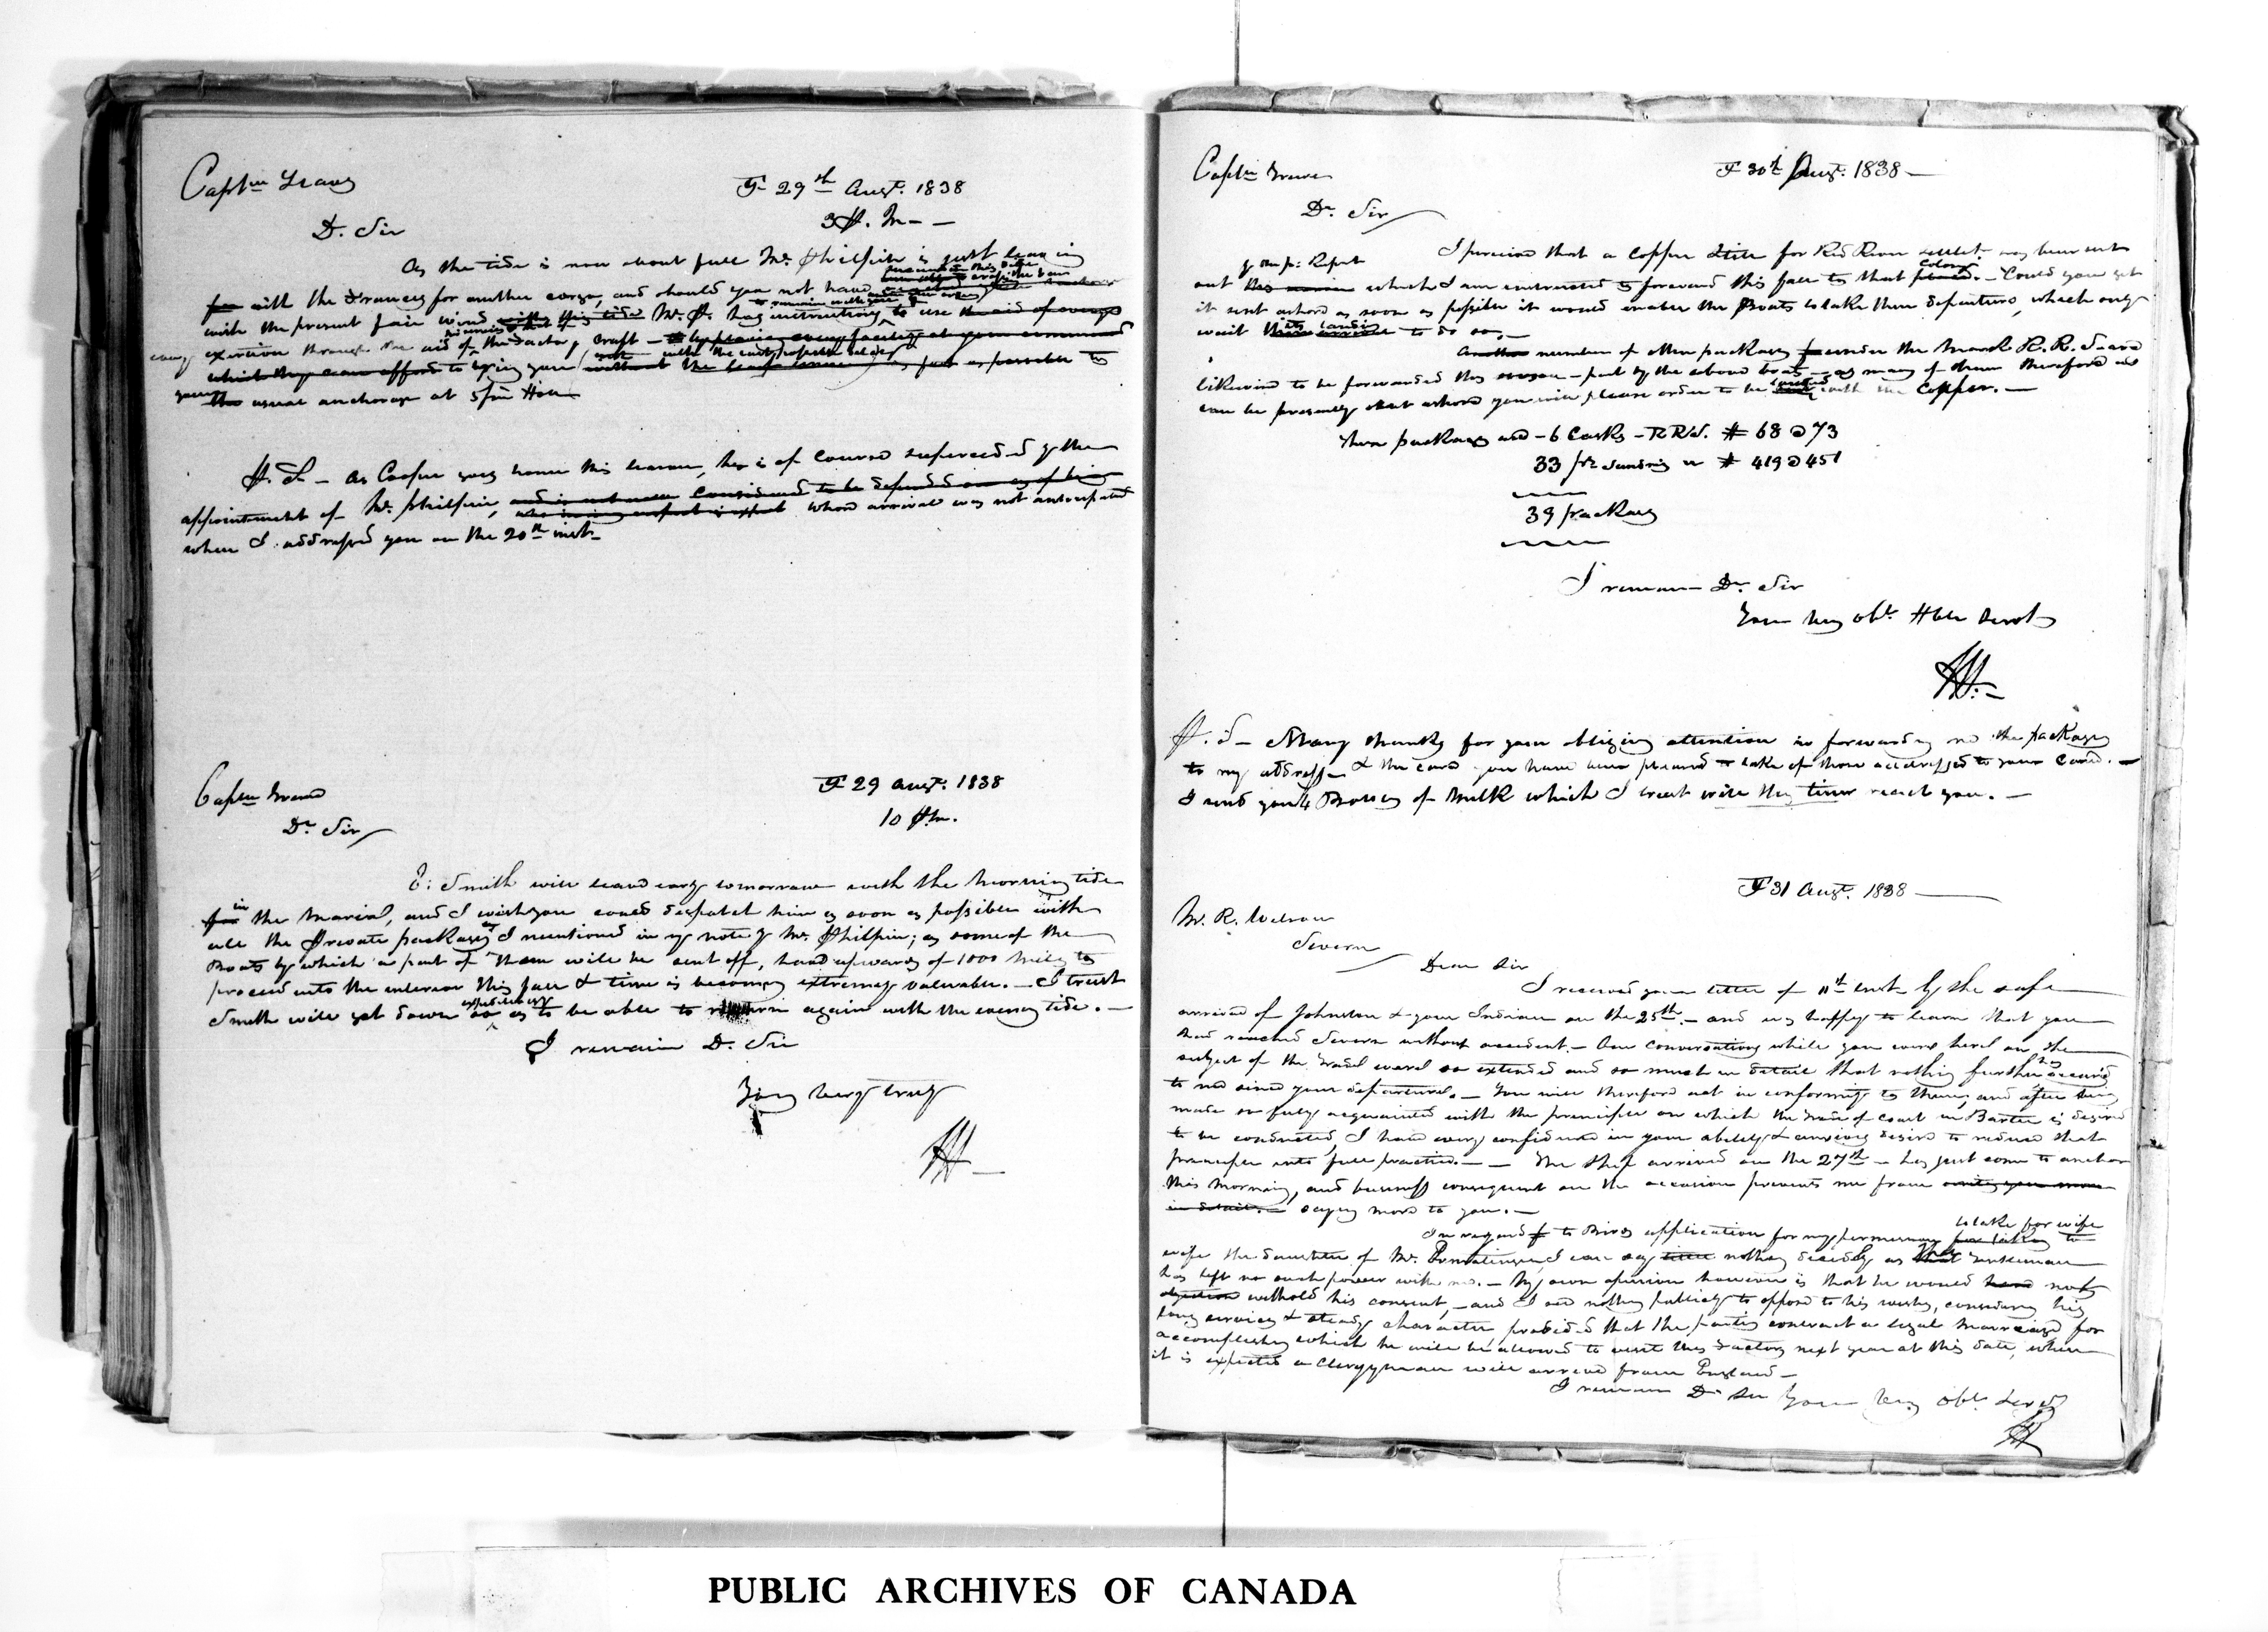 Captn Graves
YF 29th Augt. 1838
3 P. M –
D. Sir
As the tide is now about full Mr. Philpin is just leaving
for with the Frances for another cargo, and should you not have
with the present fair wind with this tide Mr. P. has instructions to use the aid of every
every exertion through the aid of the Factory Craft –
which they can afford to bring you without the least as fast as possible to
your the usual anchorage at 5 fm Hole
P. S – As Cooper goes home this season, he is of course superceeded by the
appointment of Mr. Philpin, and is not now considered to be depended on
whose arrival was not anticipated
when I addressed you on the 20th inst –
Captn Graves
YF 29 Augt. 1838
10 P.m.
Dr Sir
J: Smith will leave early tomorrow with the morning tide
for in the Marial, and I wish you could despatch him as soon as possible with
all the Private packages I mentioned in my note by Mr. Philpin; as some of the
Boats by which a part of them will be sent off, have upwards of 1000 miles to
proceed into the interior this fall & time is becoming extremely valuable. – I trust
Smith will get down so expeditiously as to be able to return again with the evening tide. –
I remain D. Sir
Yours very truly
Captn Graves
YF 30th Augt. 1838 –
Dr. Sir
I perceive that a Copper Still for Red River settlt. has been sent
out which I am instructed to forward this fall to that place. Colony – Could you get
it sent ashore as soon as possible it would enable the Boats to take their departure, which only
wait its landing to do so. –
Another number of other packages under the mark R. R. S are
likewise to be forwarded this season – part by the above boats – as many of them therefore as
can be presently sent ashore you will please order to be landed with the Copper. –
These packages are – 6 Casks – RRS. # 68 @ 73
33 ps Sundries " # 419 @ 451
39 packages
I remain Dr. Sir
Your very obt. Hble Servt
P. S – Many thanks for your obliging attention in forwarding me the packages
to my address & the care you have been pleased to take of those addressed to your care. –
I send you 4 Bottles of Milk which I trust will this time reach you. –
YF 31 Augt. 1838
Mr. R. Wilson
Severn
Dear Sir
I received your letter of 11th inst. by the safe
arrival of Johnston & your Indians on the 25th. – and was happy to learn that you
had reached Severn without accident. – Our conversations while you were here on the
subject of the Trade were so extended and so much in detail that nothing further has occurred
to me since your departure. – You will therefore act in conformity to them, and after being
made so fully acquainted with the principle on which the Trade of Coast in Barter is desired
to be conducted, I have every confidence in your ability & anxious desire to reduce that
principle into full practice. – – The ship arrived on the 27th – has just come to anchor
this morning, and business consequent on the occasion prevents me from writing you more
in detail. – saying more to you. –
In regard to Birds application for my permission for taking to to take for wife
wife the daughter of Mr. I can say nothing decidedly as that Gentleman
has left no such power with me. – My own opinion however is that he would have not
objection withold his consent, – and I see nothing publicly to oppose to his wishes, considering his
long services & steady character provided that the parties contract a legal marriage for
accomplishing which he will be allowed to visit this Factory next year at this date, when
it is expected a Clergyman will arrive from England –
I remain Dr Sir Your very obt. Servt
PUBLIC ARCHIVES OF CANADA